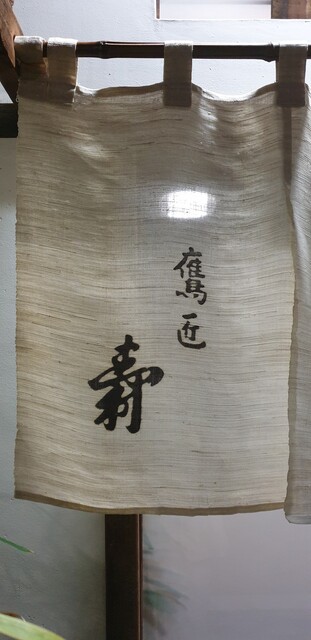 鷹匠
壽